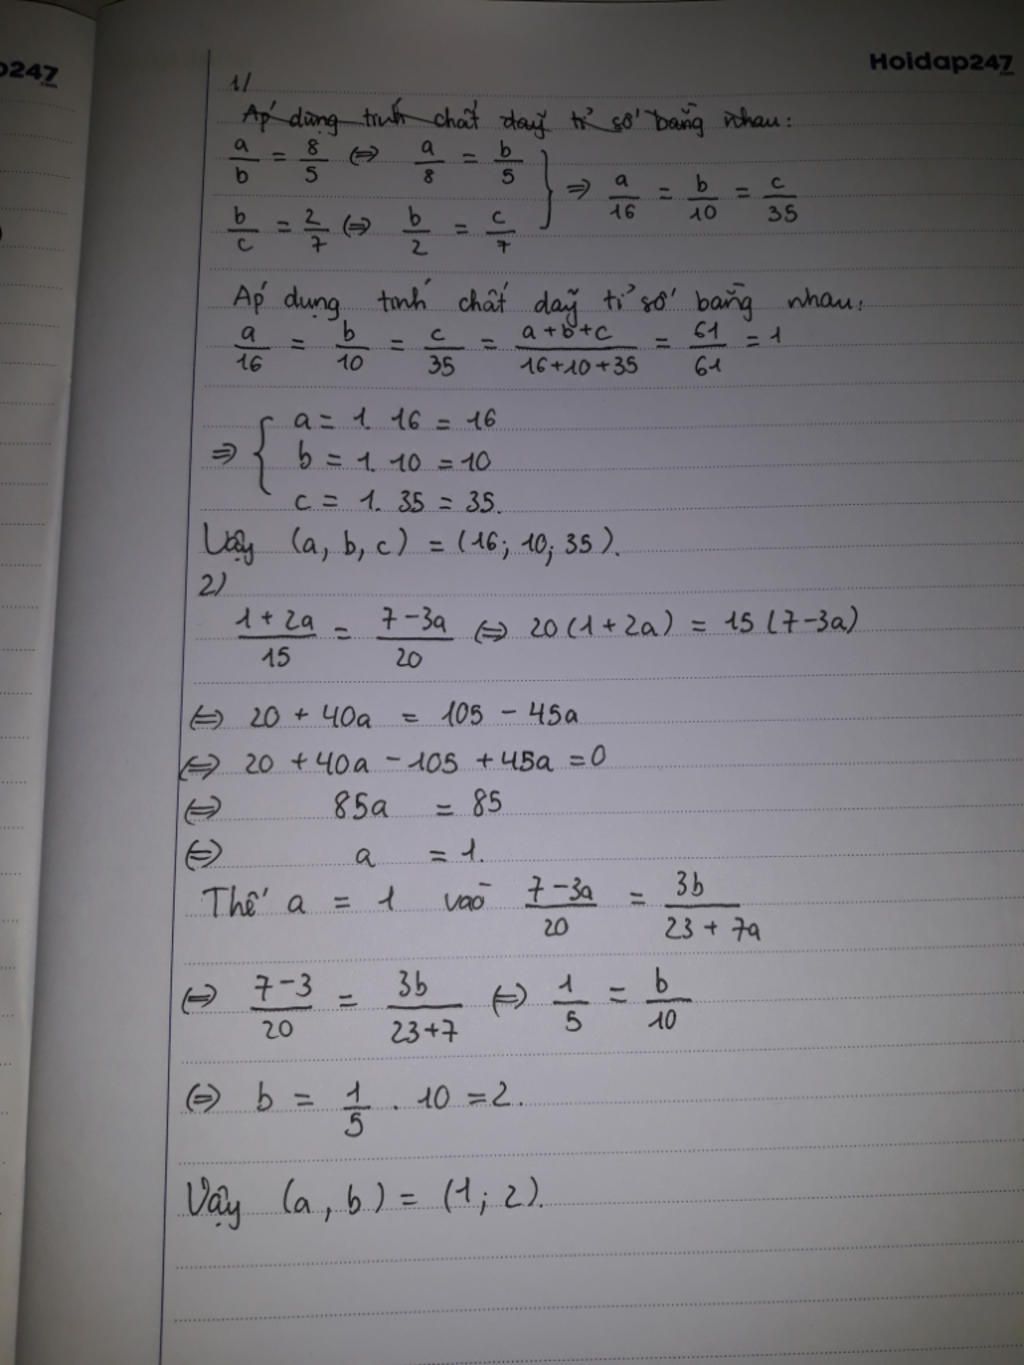 Hoidap247
247
1/
Áp dụng tính chất dãy tỉ số bằng nhau:
a/b = 8/5 ⇔ a/8 = b/5
b/c = 2/7 ⇔ b/2 = c/7 } ⇒ a/16 = b/10 = c/35
Áp dụng tính chất dãy tỉ số bằng nhau:
a/16 = b/10 = c/35 = (a+b+c)/(16+10+35) = 61/61 = 1
⇒ { a = 1. 16 = 16
b = 1. 10 = 10
c = 1. 35 = 35.
Vậy (a, b, c) = (16; 10; 35).
2)
(1+2a)/15 = (7-3a)/20 ⇔ 20(1+2a) = 15(7-3a)
⇔ 20 + 40a = 105 - 45a
⇔ 20 + 40a - 105 + 45a = 0
⇔ 85a = 85
⇔ a = 1.
Thế a = 1 vào (7-3a)/20 = 3b/(23+7a)
⇔ (7-3)/20 = 3b/(23+7) ⇔ 1/5 = b/10
⇔ b = 1/5 . 10 = 2.
Vậy (a, b) = (1; 2).